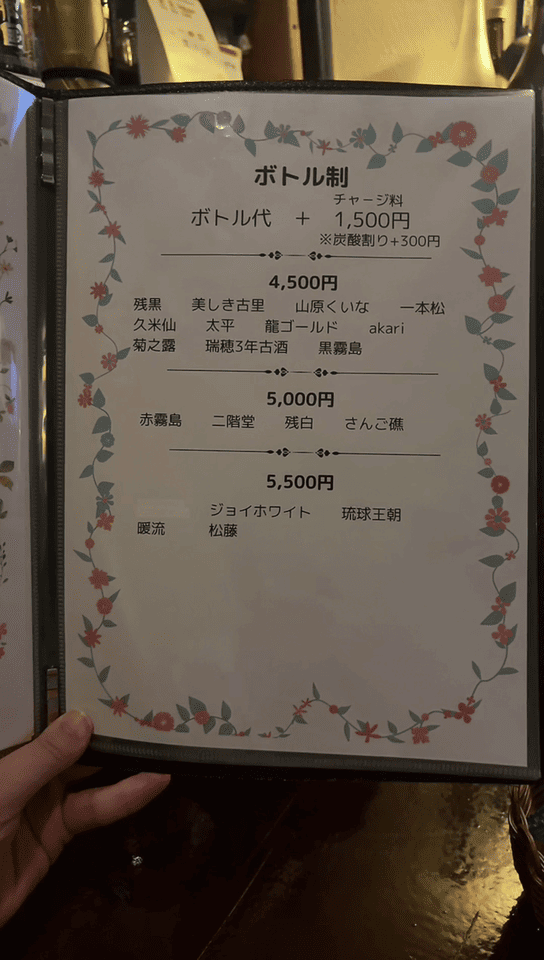 ボトル制
チャージ料
ボトル代 + 1,500円
※炭酸割り+300円
4,500円
残黒 美しき古里 山原くいな 一本松
久米仙 太平 龍ゴールド akari
菊之露 瑞穂3年古酒 黒霧島
5,000円
赤霧島 二階堂 残白 さんご礁
5,500円
ジョイホワイト 琉球王朝
暖流 松藤